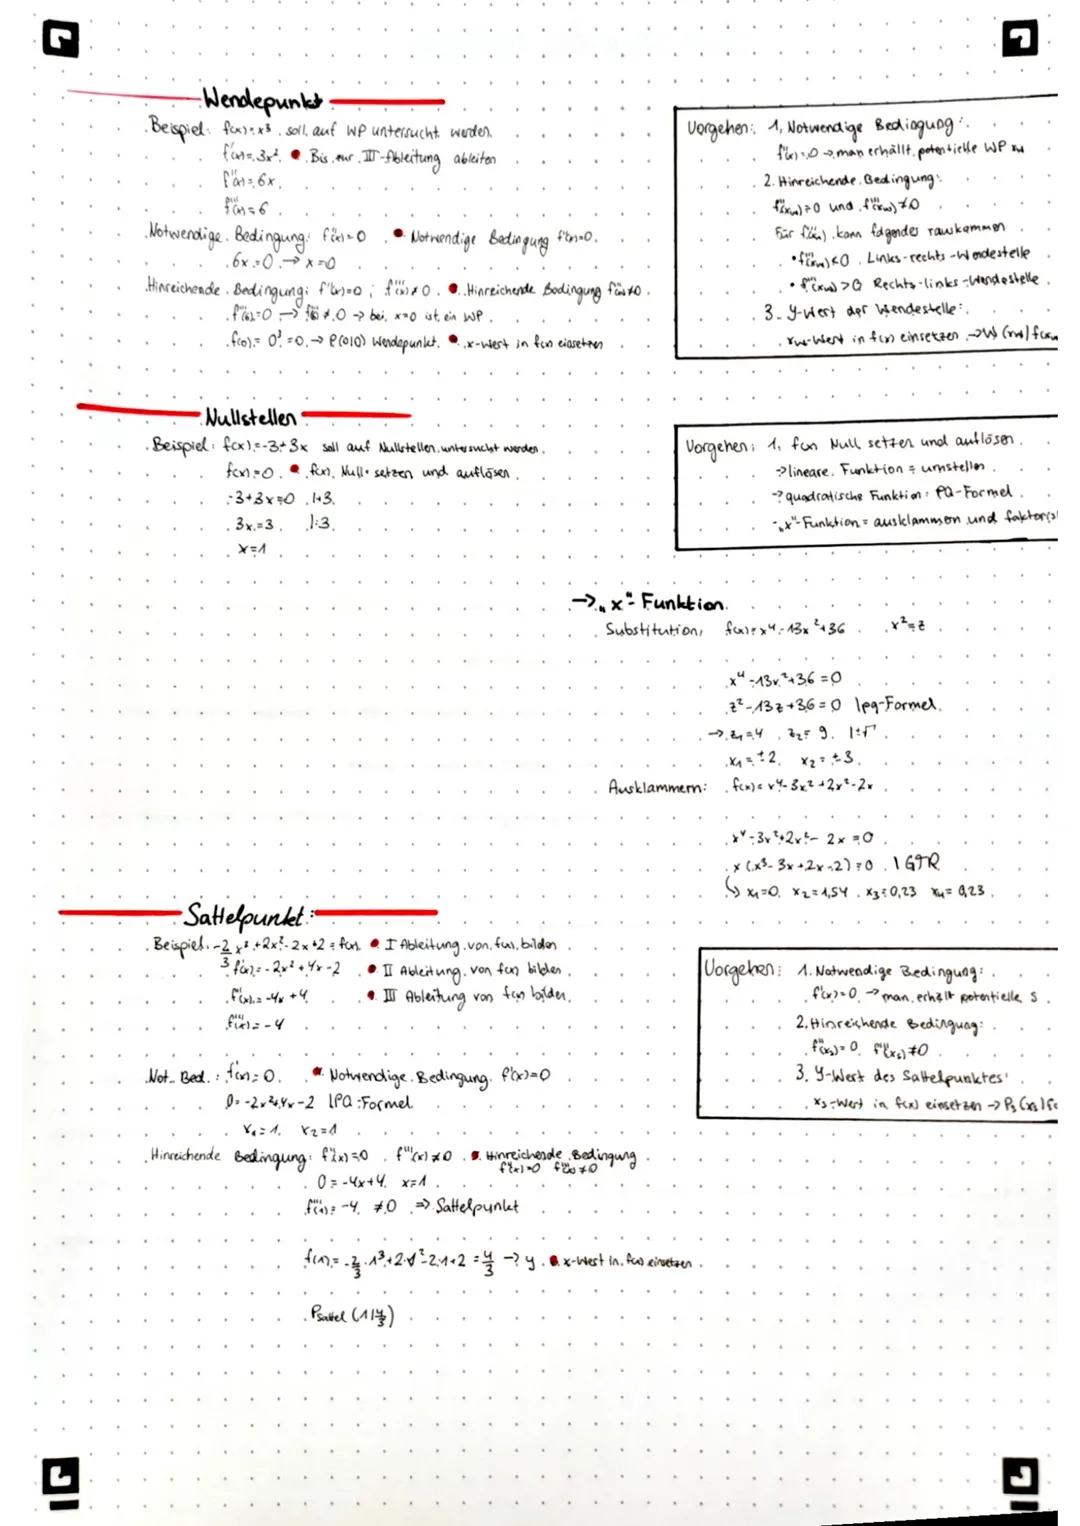 Wendepunkt
Beispiel: f(x)=x³ soll auf WP untersucht werden.
f'(x)=3x² • Bis zur III-Ableitung ableiten
f''(x)=6x
f'''(x)=6
Notwendige Bedingung: f''(x)=0 • Notwendige Bedingung f''(x)=0.
6x=0 → x=0
Hinreichende Bedingung: f''(x)=0 ; f'''(x)≠0 • Hinreichende Bedingung f'''(x)≠0.
f''(x)=0 → f'''(x)≠0 → bei x=0 ist ein WP.
f(0)=0³=0 → P(0|0) Wendepunkt. • x-Wert in f(x) einsetzen
Vorgehen: 1. Notwendige Bedingung:
f''(x)=0 → man erhällt potentielle WP xw
2. Hinreichende Bedingung:
f''(xw)=0 und f'''(xw)≠0
Für f'''(xw) kann folgendes rauskommen
• f'''(xw)<0 Links-rechts-Wendestelle
• f'''(xw)>0 Rechts-links-Wendestelle
3. y-Wert der Wendestelle:
xw-Wert in f(x) einsetzen → W (xw/f(xw
Nullstellen
Beispiel: f(x)=-3+3x soll auf Nullstellen untersucht werden.
f(x)=0 • f(x) Null setzen und auflösen
-3+3x=0 |+3
3x=3 |:3
x=1
Vorgehen: 1. f(x) Null setzen und auflösen
→ lineare Funktion = umstellen
→ quadratische Funktion: PQ-Formel
→ „x"-Funktion = ausklammen und
→ „x"-Funktion.
Substitution: f(x)=x⁴-13x²+36 x²=z
x⁴-13x²+36=0
z²-13z+36=0 |pq-Formel
→ z₁=4 z₂=9 |±√
x₁=±2 x₂=±3
Ausklammern: f(x)=x⁴-3x²+2x²-2x
x⁴-3x²+2x²-2x=0
x(x³-3x+2x-2)=0 | GTR
↳ x₁=0 x₂=1,54 x₃=0,23 x₄=0,23
Sattelpunkt:
Beispiel: -2/3 x³+2x²-2x+2=f(x) • I Ableitung von f(x) bilden
f'(x)=-2x²+4x-2 • II Ableitung von f(x) bilden
f''(x)=-4x+4 • III Ableitung von f(x) bilden
f'''(x)=-4
Not. Bed.: f'(x)=0 • Notwendige Bedingung f'(x)=0
0=-2x²+4x-2 |PQ-Formel
x₁=1 x₂=1
Hinreichende Bedingung: f''(x)=0 f'''(x)≠0 • Hinreichende Bedingung
f''(x)=0 f'''(x)≠0
0=-4x+4 x=1
f'''(1)=-4 ≠0 ⇒ Sattelpunkt
f(1)=-2/3·1³+2·1²-2·1+2=4/3 → y • x-Wert in f(x) einsetzen
PSattel (1|4/3)
Vorgehen: 1. Notwendige Bedingung:
f'(x)=0 → man erhält potentielle S
2. Hinreichende Bedingung:
f''(xs)=0 f'''(xs)≠0
3. y-Wert des Sattelpunktes:
xs-Wert in f(x) einsetzen → Ps (xs|f(